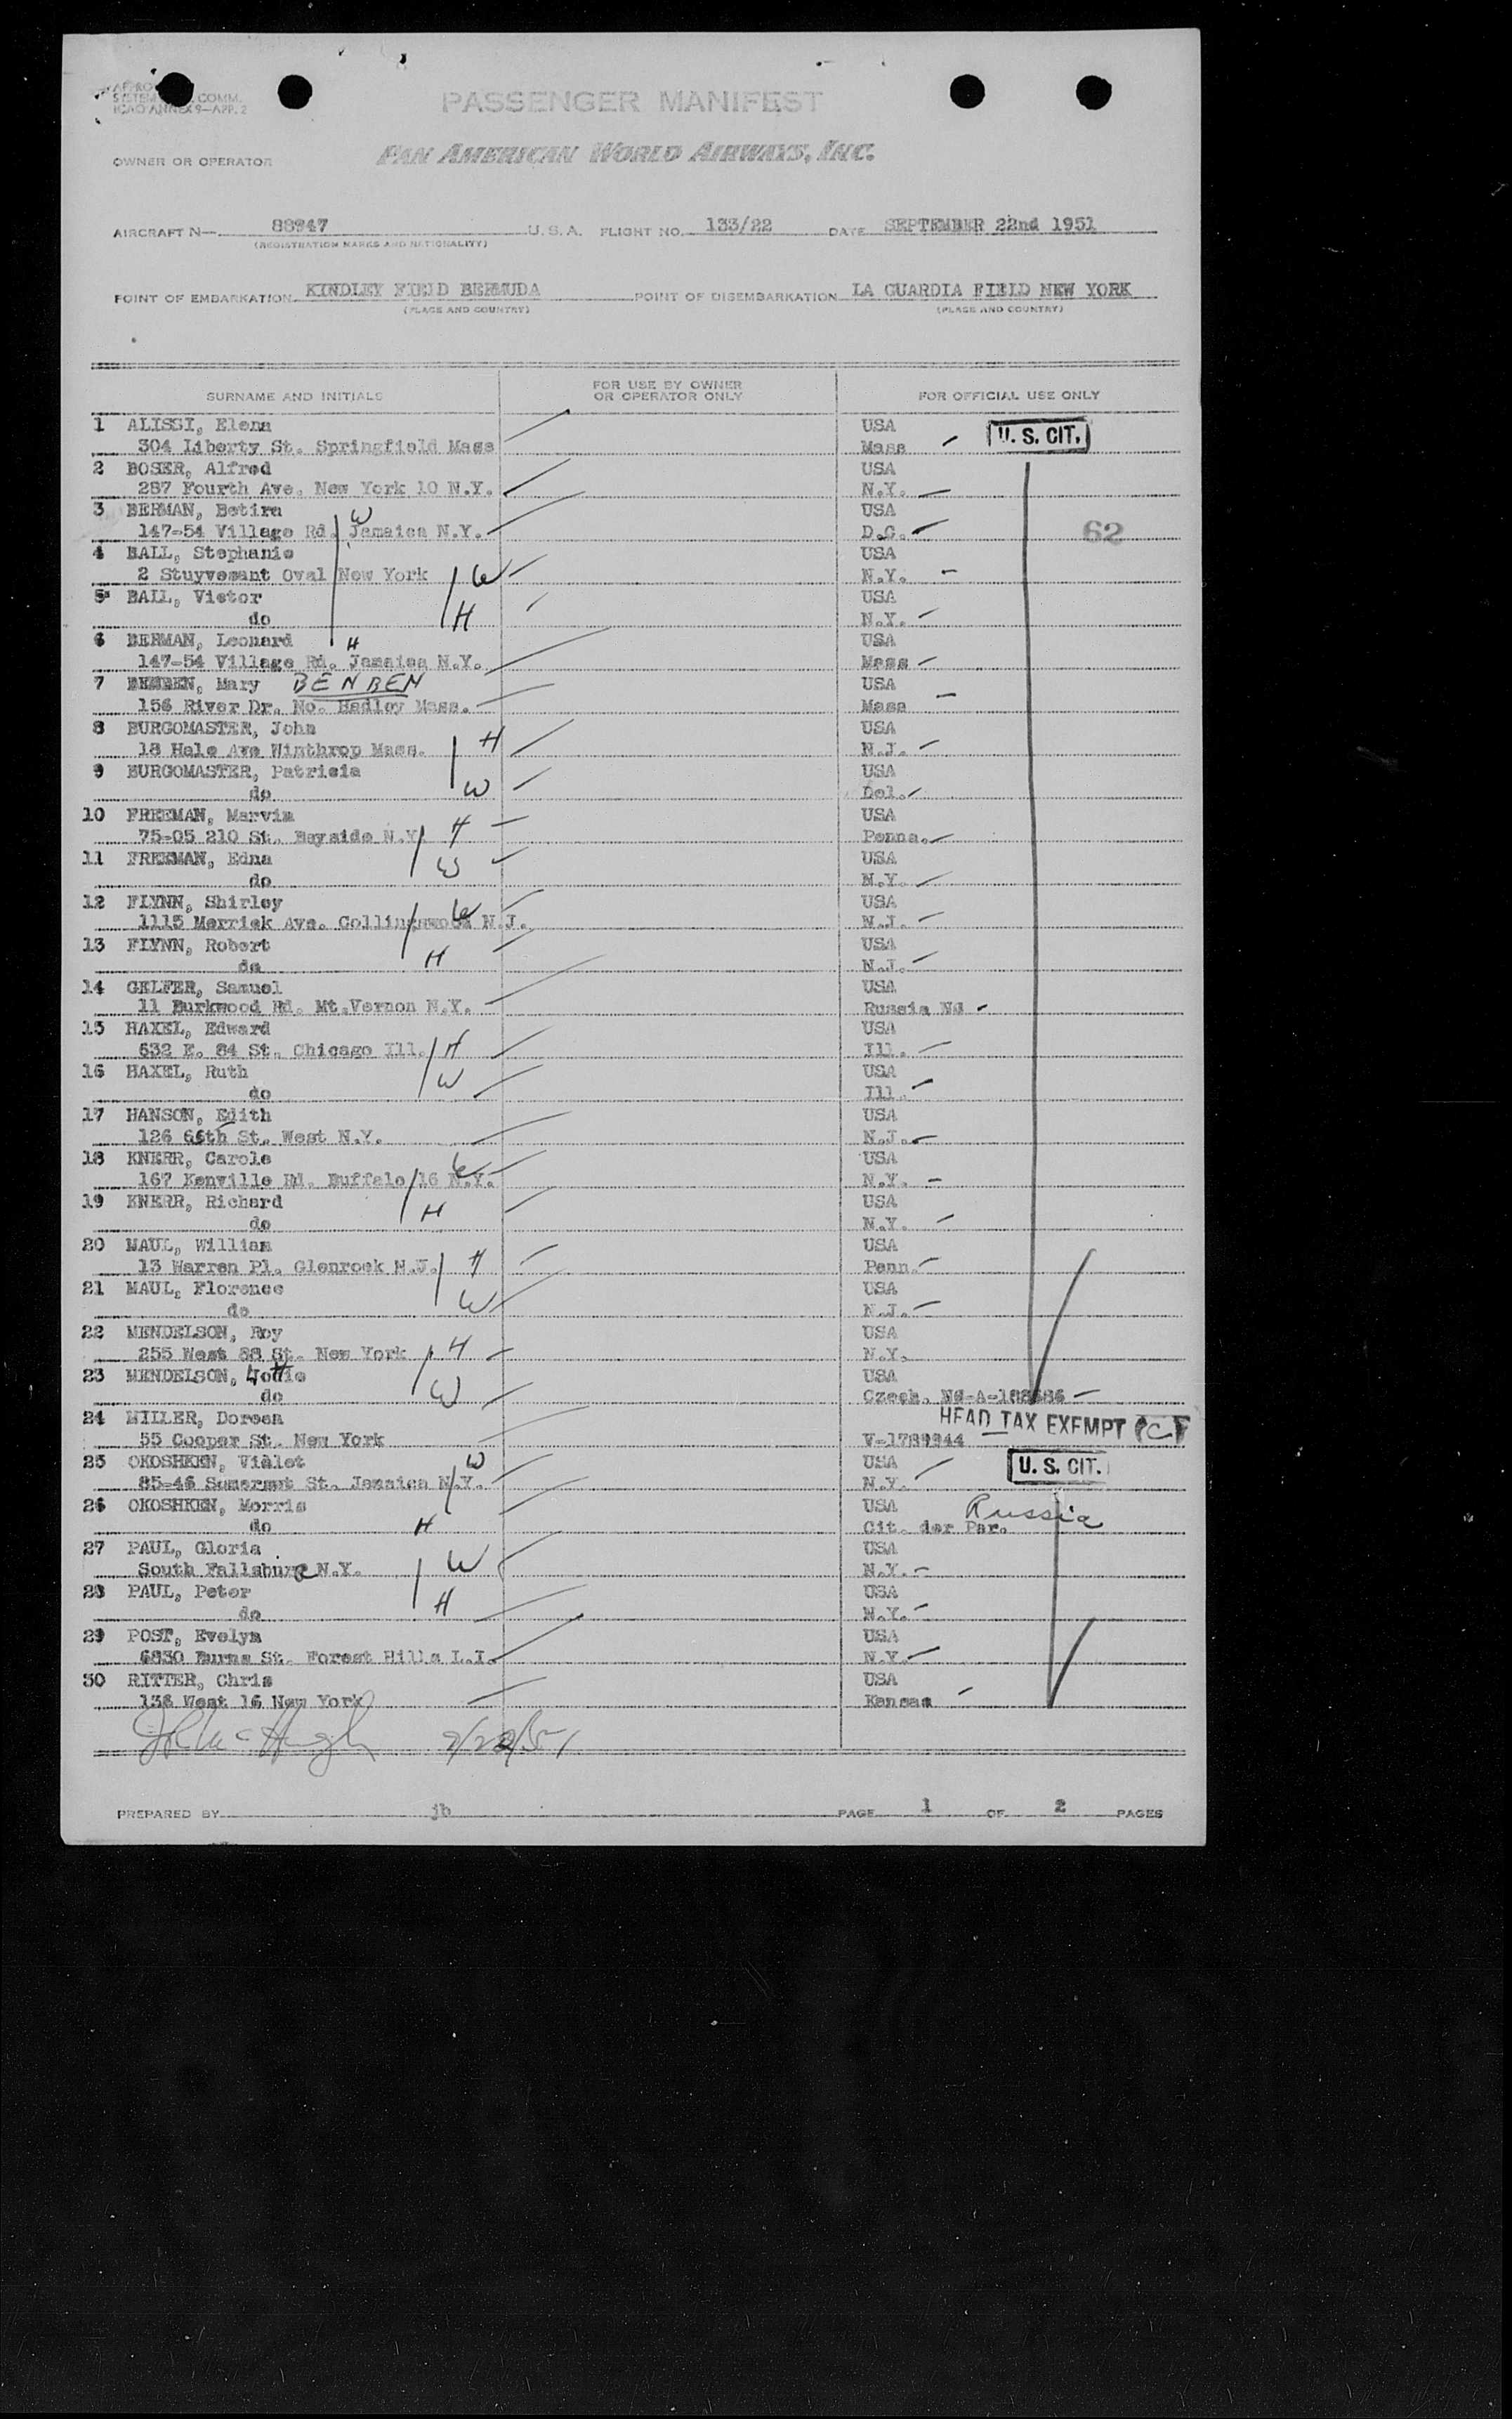 COMM.
ICAO ANNEX 9—APP. 2
PASSENGER MANIFEST
OWNER OR OPERATOR
PAN AMERICAN WORLD AIRWAYS, INC.
AIRCRAFT N— 88947 U.S.A. FLIGHT NO. 133/22 DATE SEPTEMBER 22nd 1951
(REGISTRATION MARKS AND NATIONALITY)
POINT OF EMBARKATION KINDLEY FIELD BERMUDA POINT OF DISEMBARKATION LA GUARDIA FIELD NEW YORK
(PLACE AND COUNTRY) (PLACE AND COUNTRY)
SURNAME AND INITIALS FOR USE BY OWNER OR OPERATOR ONLY FOR OFFICIAL USE ONLY
1 ALISSI, Elena USA
304 Liberty St. Springfield Mass Mass U. S. CIT.
2 BOSER, Alfred USA
287 Fourth Ave. New York 10 N.Y. N.Y.
3 BERMAN, Betira W USA
147-54 Village Rd. Jamaica N.Y. D.C. 62
4 BALL, Stephanie USA
2 Stuyvesant Oval New York W N.Y.
5 BALL, Victor USA
do H N.Y.
6 BERMAN, Leonard H USA
147-54 Village Rd. Jamaica N.Y. Mass
7 BEMBEN, Mary BENBEN USA
156 River Dr. No. Hadley Mass. Mass
8 BURGOMASTER, John H USA
18 Hale Ave Winthrop Mass. N.J.
9 BURGOMASTER, Patricia USA
do W Del.
10 FREEMAN, Marvin H USA
75-05 210 St. Bayside N.Y. Penna.
11 FREEMAN, Edna W USA
do N.Y.
12 FLYNN, Shirley W USA
1115 Merrick Ave. Collingswood N.J. N.J.
13 FLYNN, Robert USA
do H N.J.
14 GELFER, Samuel USA
11 Burkwood Rd. Mt.Vernon N.Y. Russia NS
15 HAXEL, Edward USA
632 E. 84 St. Chicago Ill. H Ill.
16 HAXEL, Ruth W USA
do Ill.
17 HANSON, Edith USA
126 66th St. West N.Y. N.J.
18 KNERR, Carole W USA
167 Kenville Rd. Buffalo 16 N.Y. N.Y.
19 KNERR, Richard H USA
do N.Y.
20 MAUL, William USA
13 Warren Pl. Glenrock N.J. H Penn.
21 MAUL, Florence W USA
do N.J.
22 MENDELSON, Roy USA
255 West 88 St. New York H N.Y.
23 MENDELSON, USA
do W Czech.
24 MILLER, Doreen HEAD TAX EXEMPT
55 Cooper St. New York V-1789944
25 OKOSHKEN, Violet W USA U. S. CIT.
85-46 Somerset St. Jamaica N.Y. N.Y.
26 OKOSHKEN, Morris USA Russia
do H Cit. der Par.
27 PAUL, Gloria W USA
South Fallsburg N.Y. N.Y.
28 PAUL, Peter USA
do H N.Y.
29 POST, Evelyn USA
6830 Burns St. Forest Hills L.I. N.Y.
30 RITTER, Chris USA
136 West 16 New York Kansas
9/22/51
PREPARED BY jb PAGE 1 OF 2 PAGES